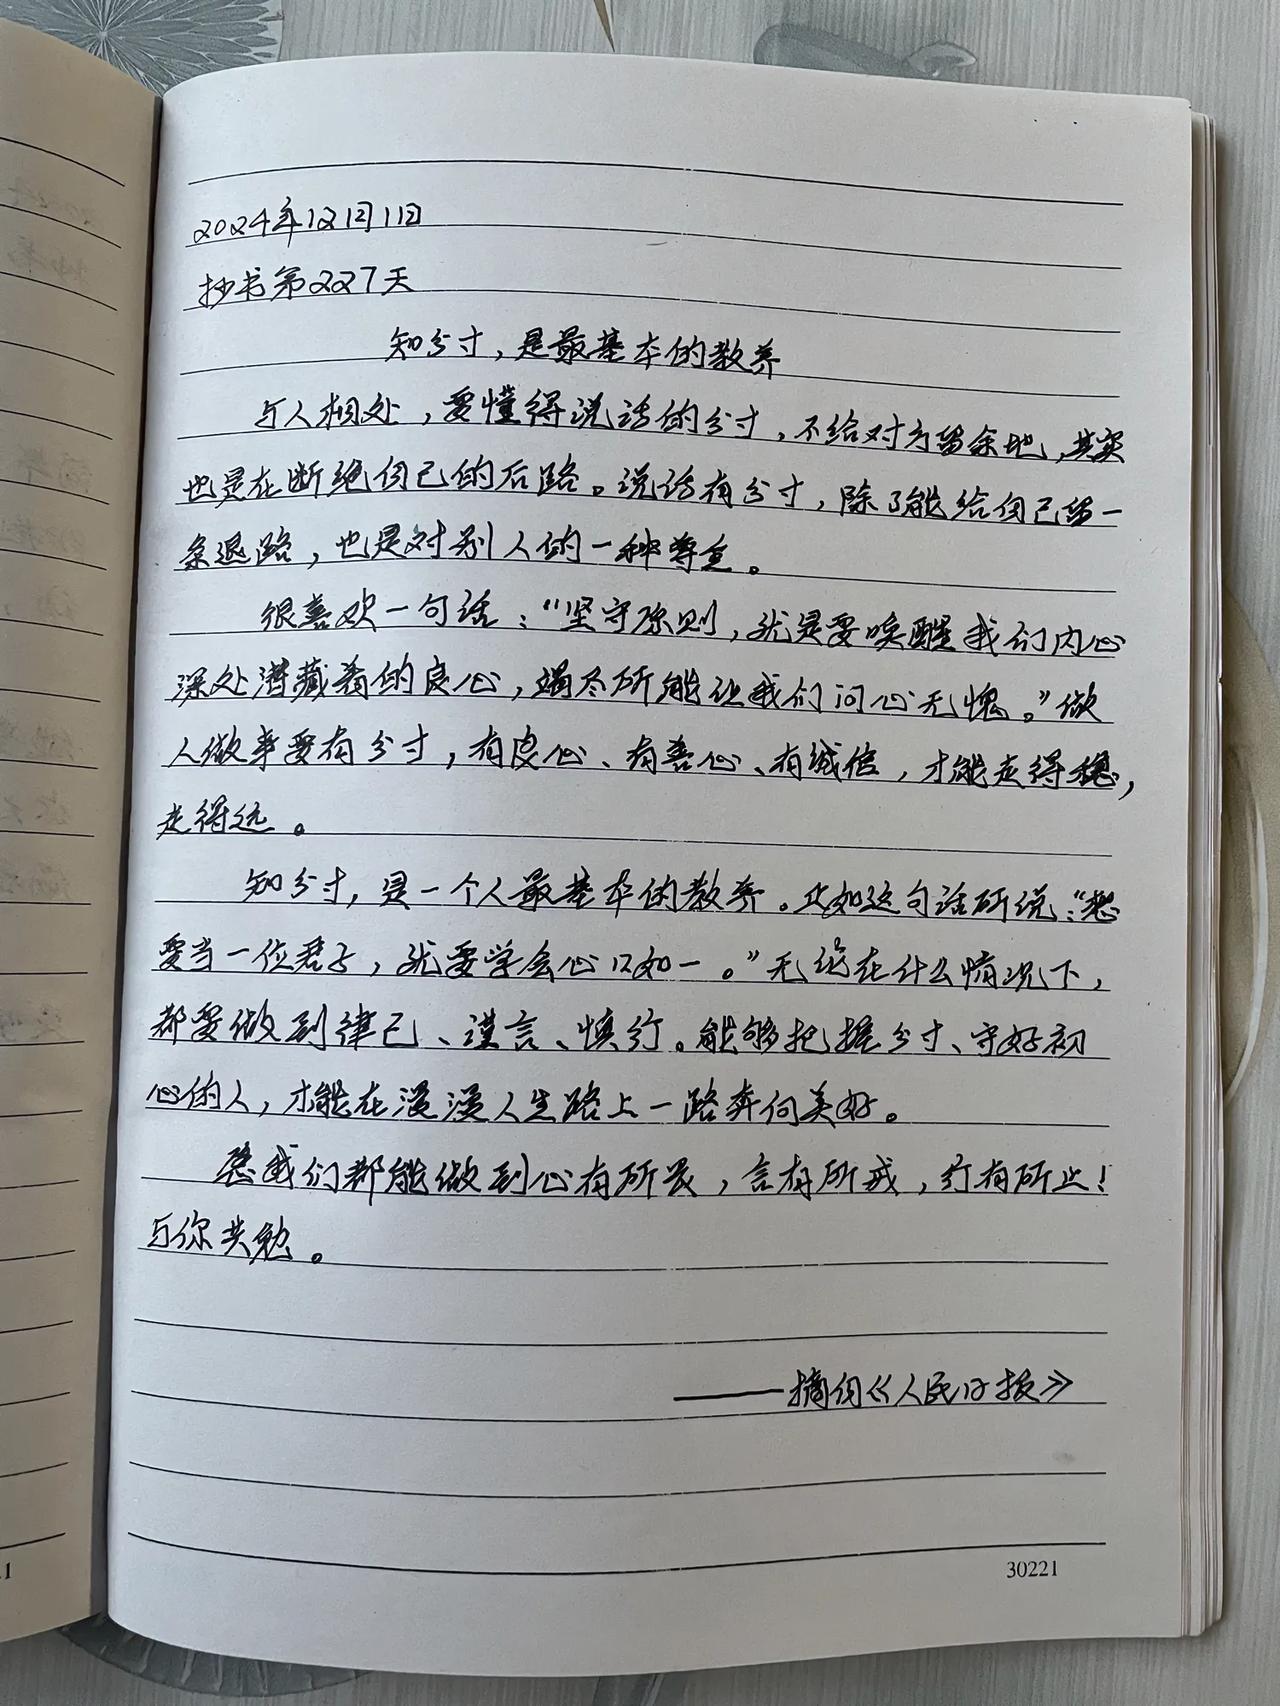 2024年12月1日
抄书第227天
知分寸，是最基本的教养
与人相处，要懂得说话的分寸，不给对方留余地，其实
也是在断绝自己的后路。说话有分寸，除了能给自己留一
条退路，也是对别人的一种尊重。
很喜欢一句话：“坚守原则，就是要唤醒我们内心
深处潜藏着的良心，竭尽所能让我们问心无愧。”做
人做事要有分寸，有良心、有善心、有诚信，才能走得稳，
走得远。
知分寸，是一个人最基本的教养。正如这句话所说：“想
要当一位君子，就要学会心口如一。”无论在什么情况下，
都要做到律己、谨言、慎行。能够把握分寸、守好初
心的人，才能在漫漫人生路上一路奔向美好。
愿我们都能做到心有所畏，言有所戒，行有所止！
与你共勉。
——摘自《人民日报》
30221